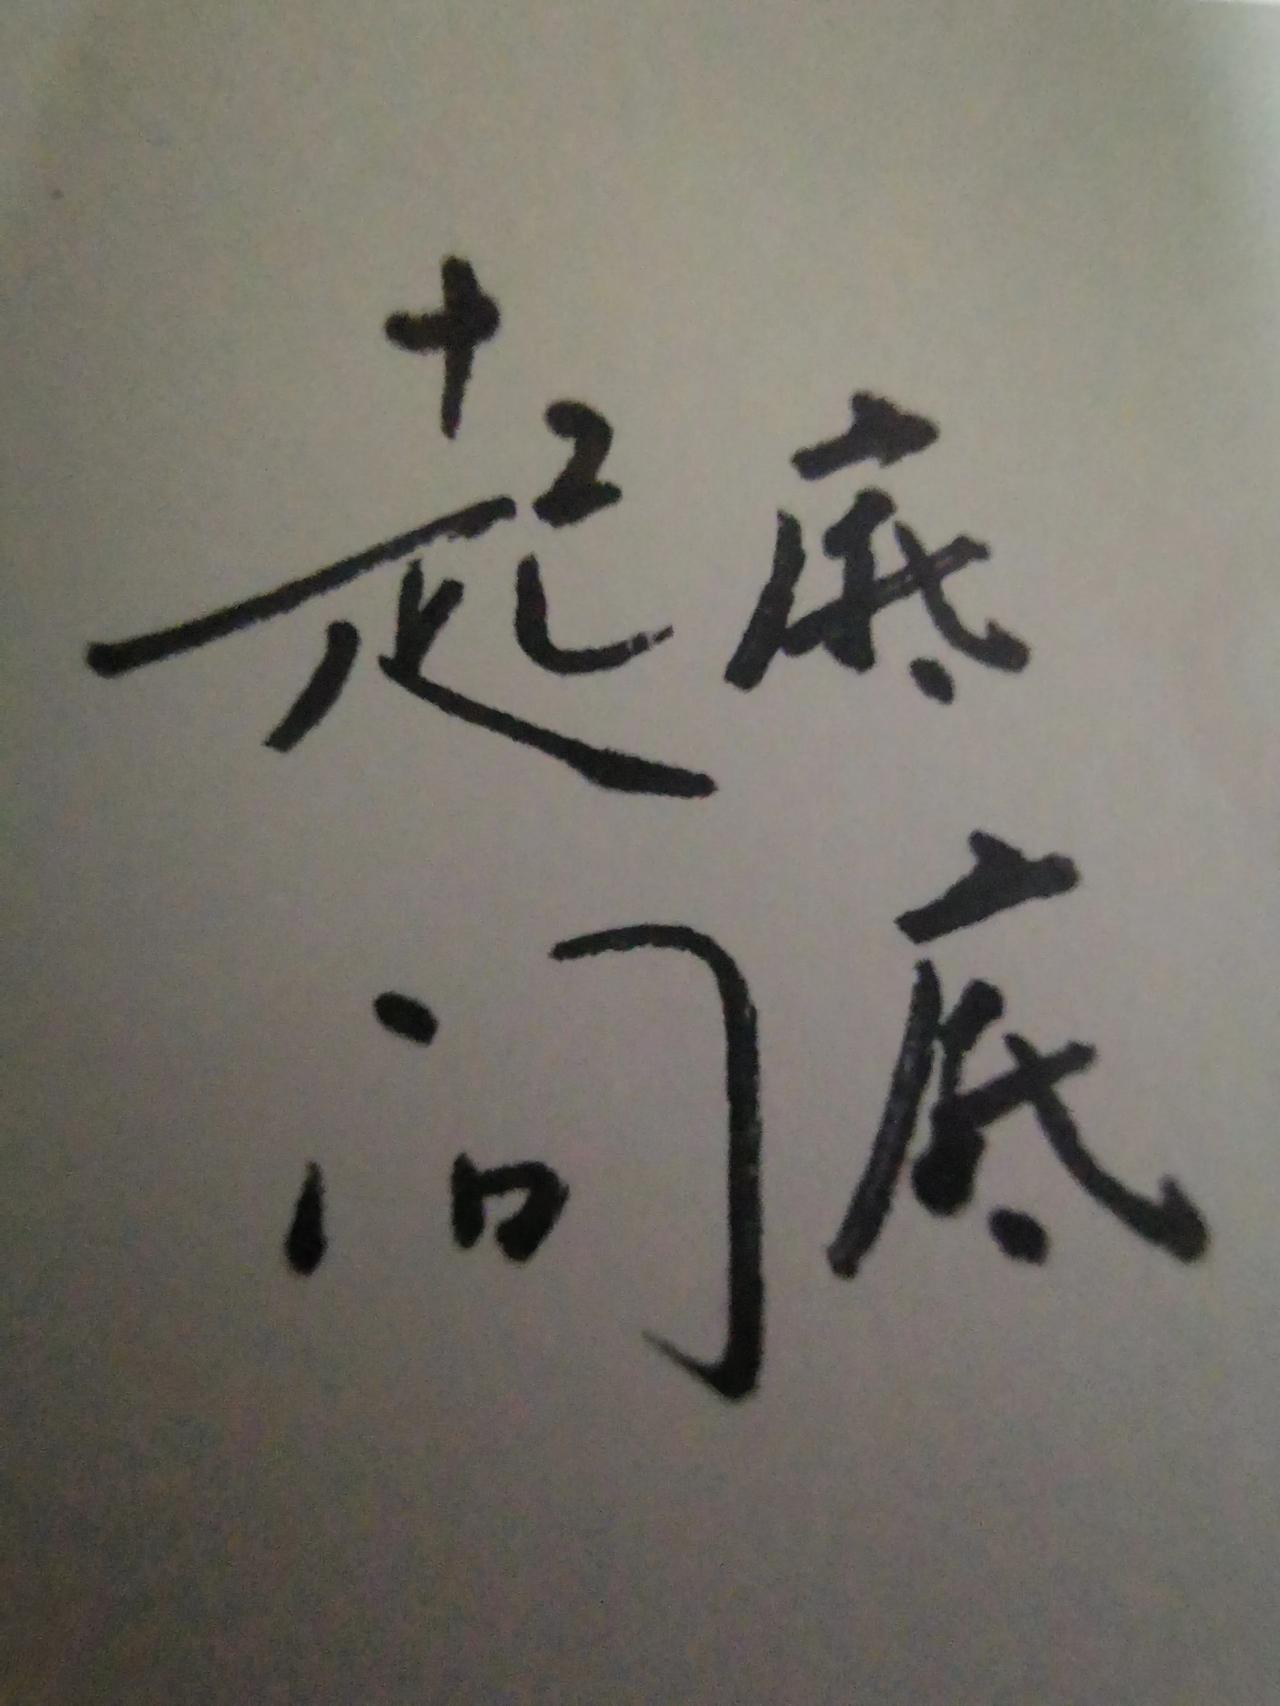 起底
问底